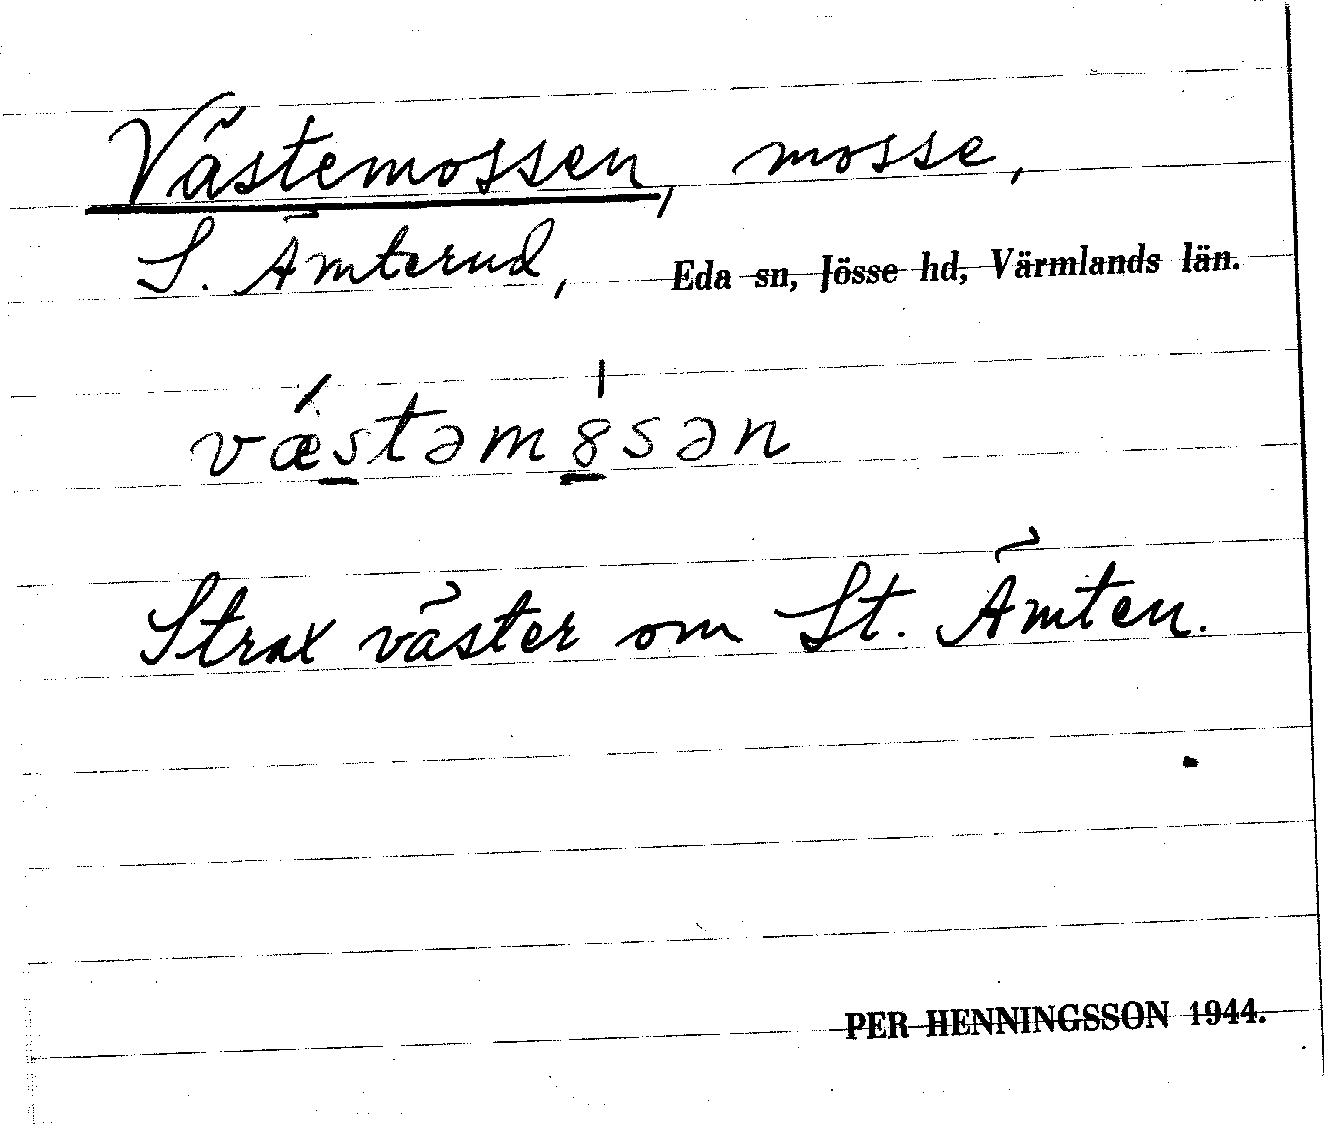 Västemossen, mosse,
S. Ämterud, Eda sn, Jösse hd, Värmlands län.
vǽstəm8̱sən
Strax väster om St. Ämten.
PER HENNINGSSON 1944.